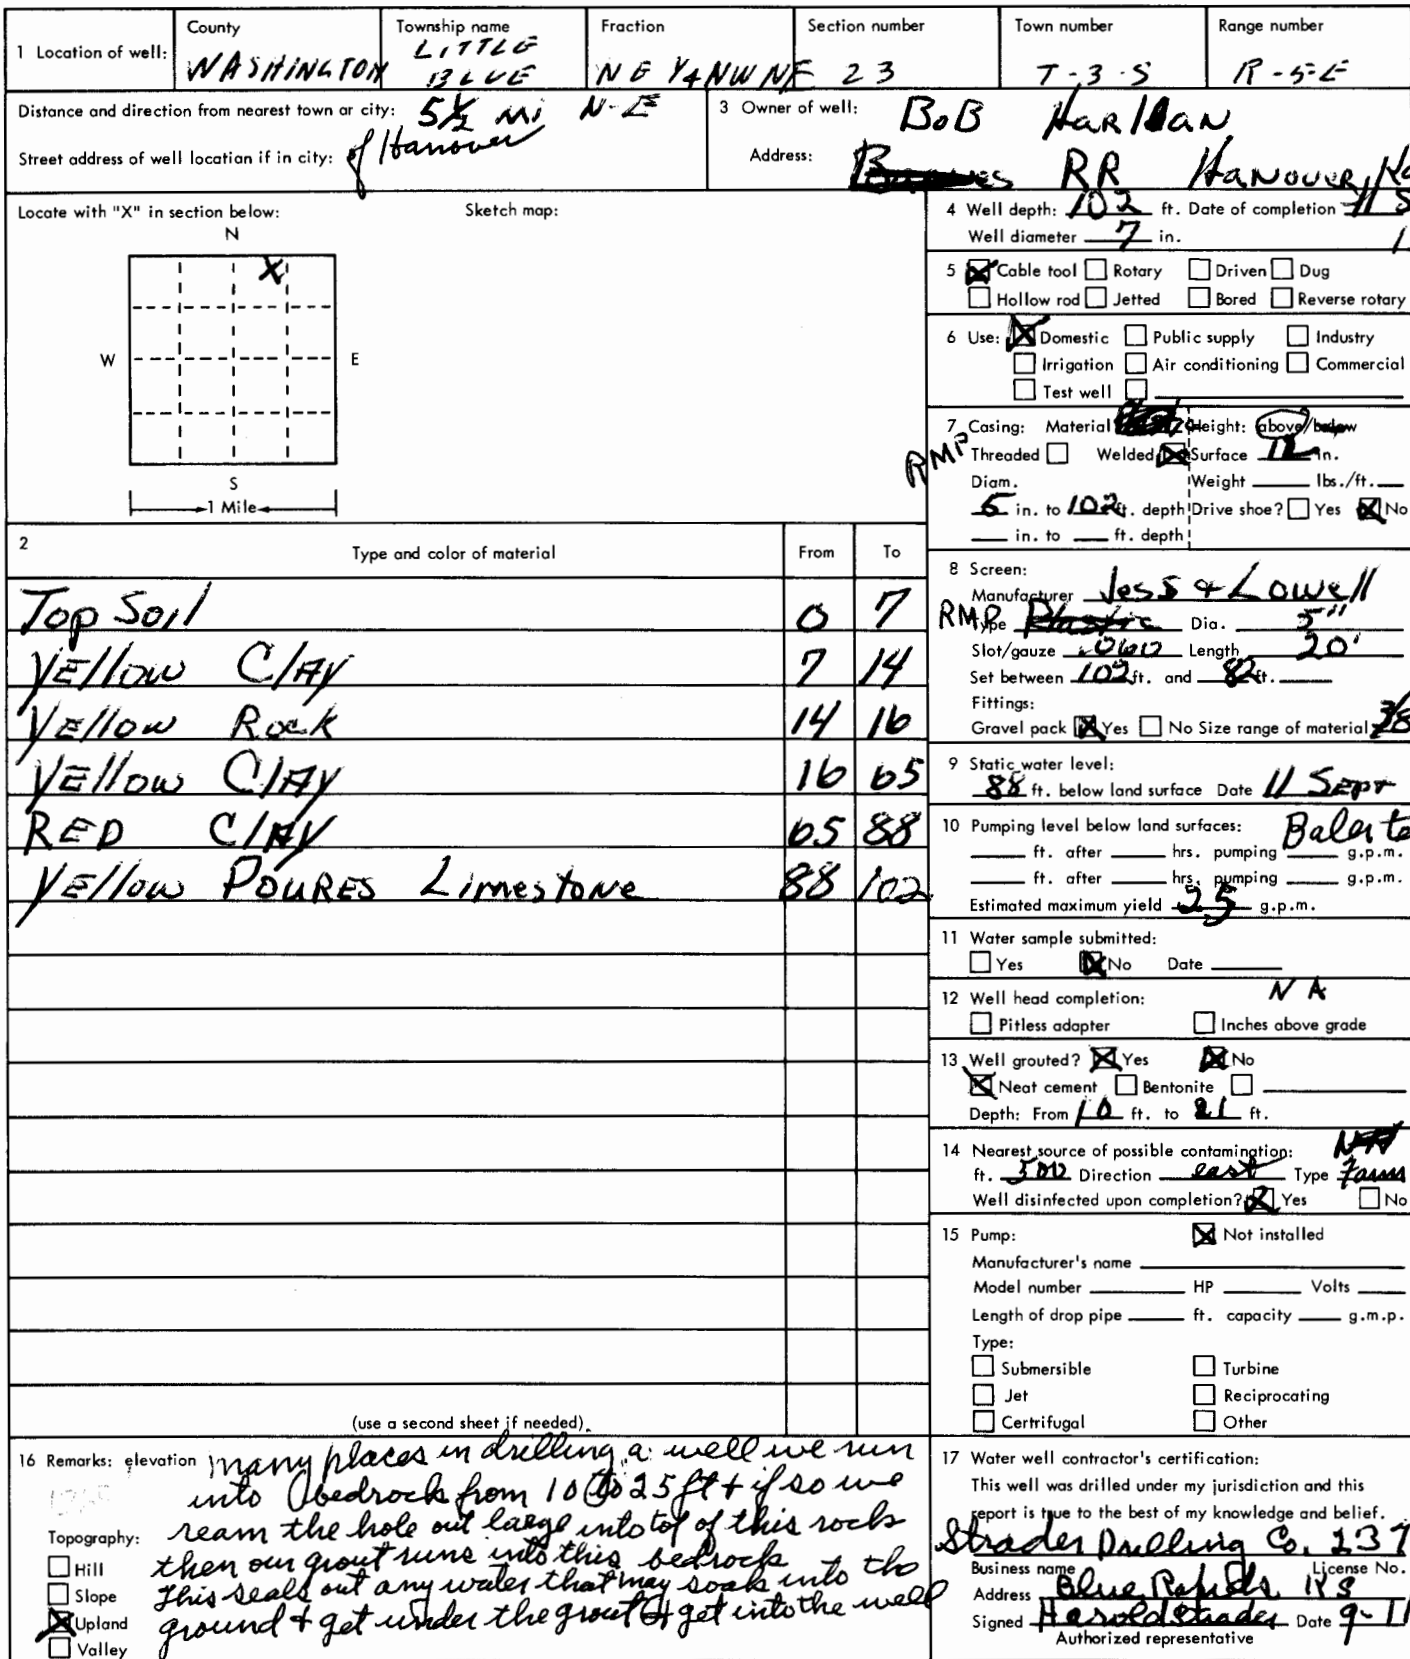 1 Location of well: County WASHINGTON Township name LITTLE BLUE Fraction NE Y4NW NE Section number 23 Town number T-3-S Range number R-5-E
Distance and direction from nearest town or city: 5½ mi N-E
Street address of well location if in city: of Hanover
3 Owner of well: BOB Harlan
Address: RR HANOVER, Ka
Locate with "X" in section below: Sketch map:
N
X
W E
S
1 Mile
4 Well depth: 102 ft. Date of completion 11 S
Well diameter 7 in.
5 Cable tool Rotary Driven Dug
Hollow rod Jetted Bored Reverse rotary
6 Use: Domestic Public supply Industry
Irrigation Air conditioning Commercial
Test well
7 Casing: Material Height: above/below
RMP Threaded Welded Surface 12 in.
Diam. Weight lbs./ft.
5 in. to 102 ft. depth Drive shoe? Yes No
in. to ft. depth
2 Type and color of material From To
Top Soil 0 7
Yellow Clay 7 14
Yellow Rock 14 16
Yellow Clay 16 65
RED Clay 65 88
Yellow POURES Limestone 88 102
(use a second sheet if needed)
8 Screen:
Manufacturer Jess & Lowell
RMP Type Plastic Dia. 5"
Slot/gauze .060 Length 20'
Set between 102 ft. and 82 ft.
Fittings:
Gravel pack Yes No Size range of material 3/8
9 Static water level:
88 ft. below land surface Date 11 Sept
10 Pumping level below land surfaces: Baler te
ft. after hrs. pumping g.p.m.
ft. after hrs. pumping g.p.m.
Estimated maximum yield 25 g.p.m.
11 Water sample submitted:
Yes No Date
12 Well head completion: NA
Pitless adapter Inches above grade
13 Well grouted? Yes No
Neat cement Bentonite
Depth: From 10 ft. to 21 ft.
14 Nearest source of possible contamination: NA
ft. 500 Direction east Type Farm
Well disinfected upon completion? Yes No
15 Pump: Not installed
Manufacturer's name
Model number HP Volts
Length of drop pipe ft. capacity g.m.p.
Type:
Submersible Turbine
Jet Reciprocating
Certrifugal Other
16 Remarks: elevation many places in drilling a well we run
into bedrock from 10 to 25 ft & if so we
ream the hole out large into top of this rock
then our grout runs into this bedrock
This seals out any water that may soak into the
ground & get under the grout & get into the well
Topography:
Hill
Slope
Upland
Valley
17 Water well contractor's certification:
This well was drilled under my jurisdiction and this
report is true to the best of my knowledge and belief.
Strader Drilling Co. 237
Business name License No.
Address Blue Rapids KS
Signed Harold Strader Date 9-11
Authorized representative